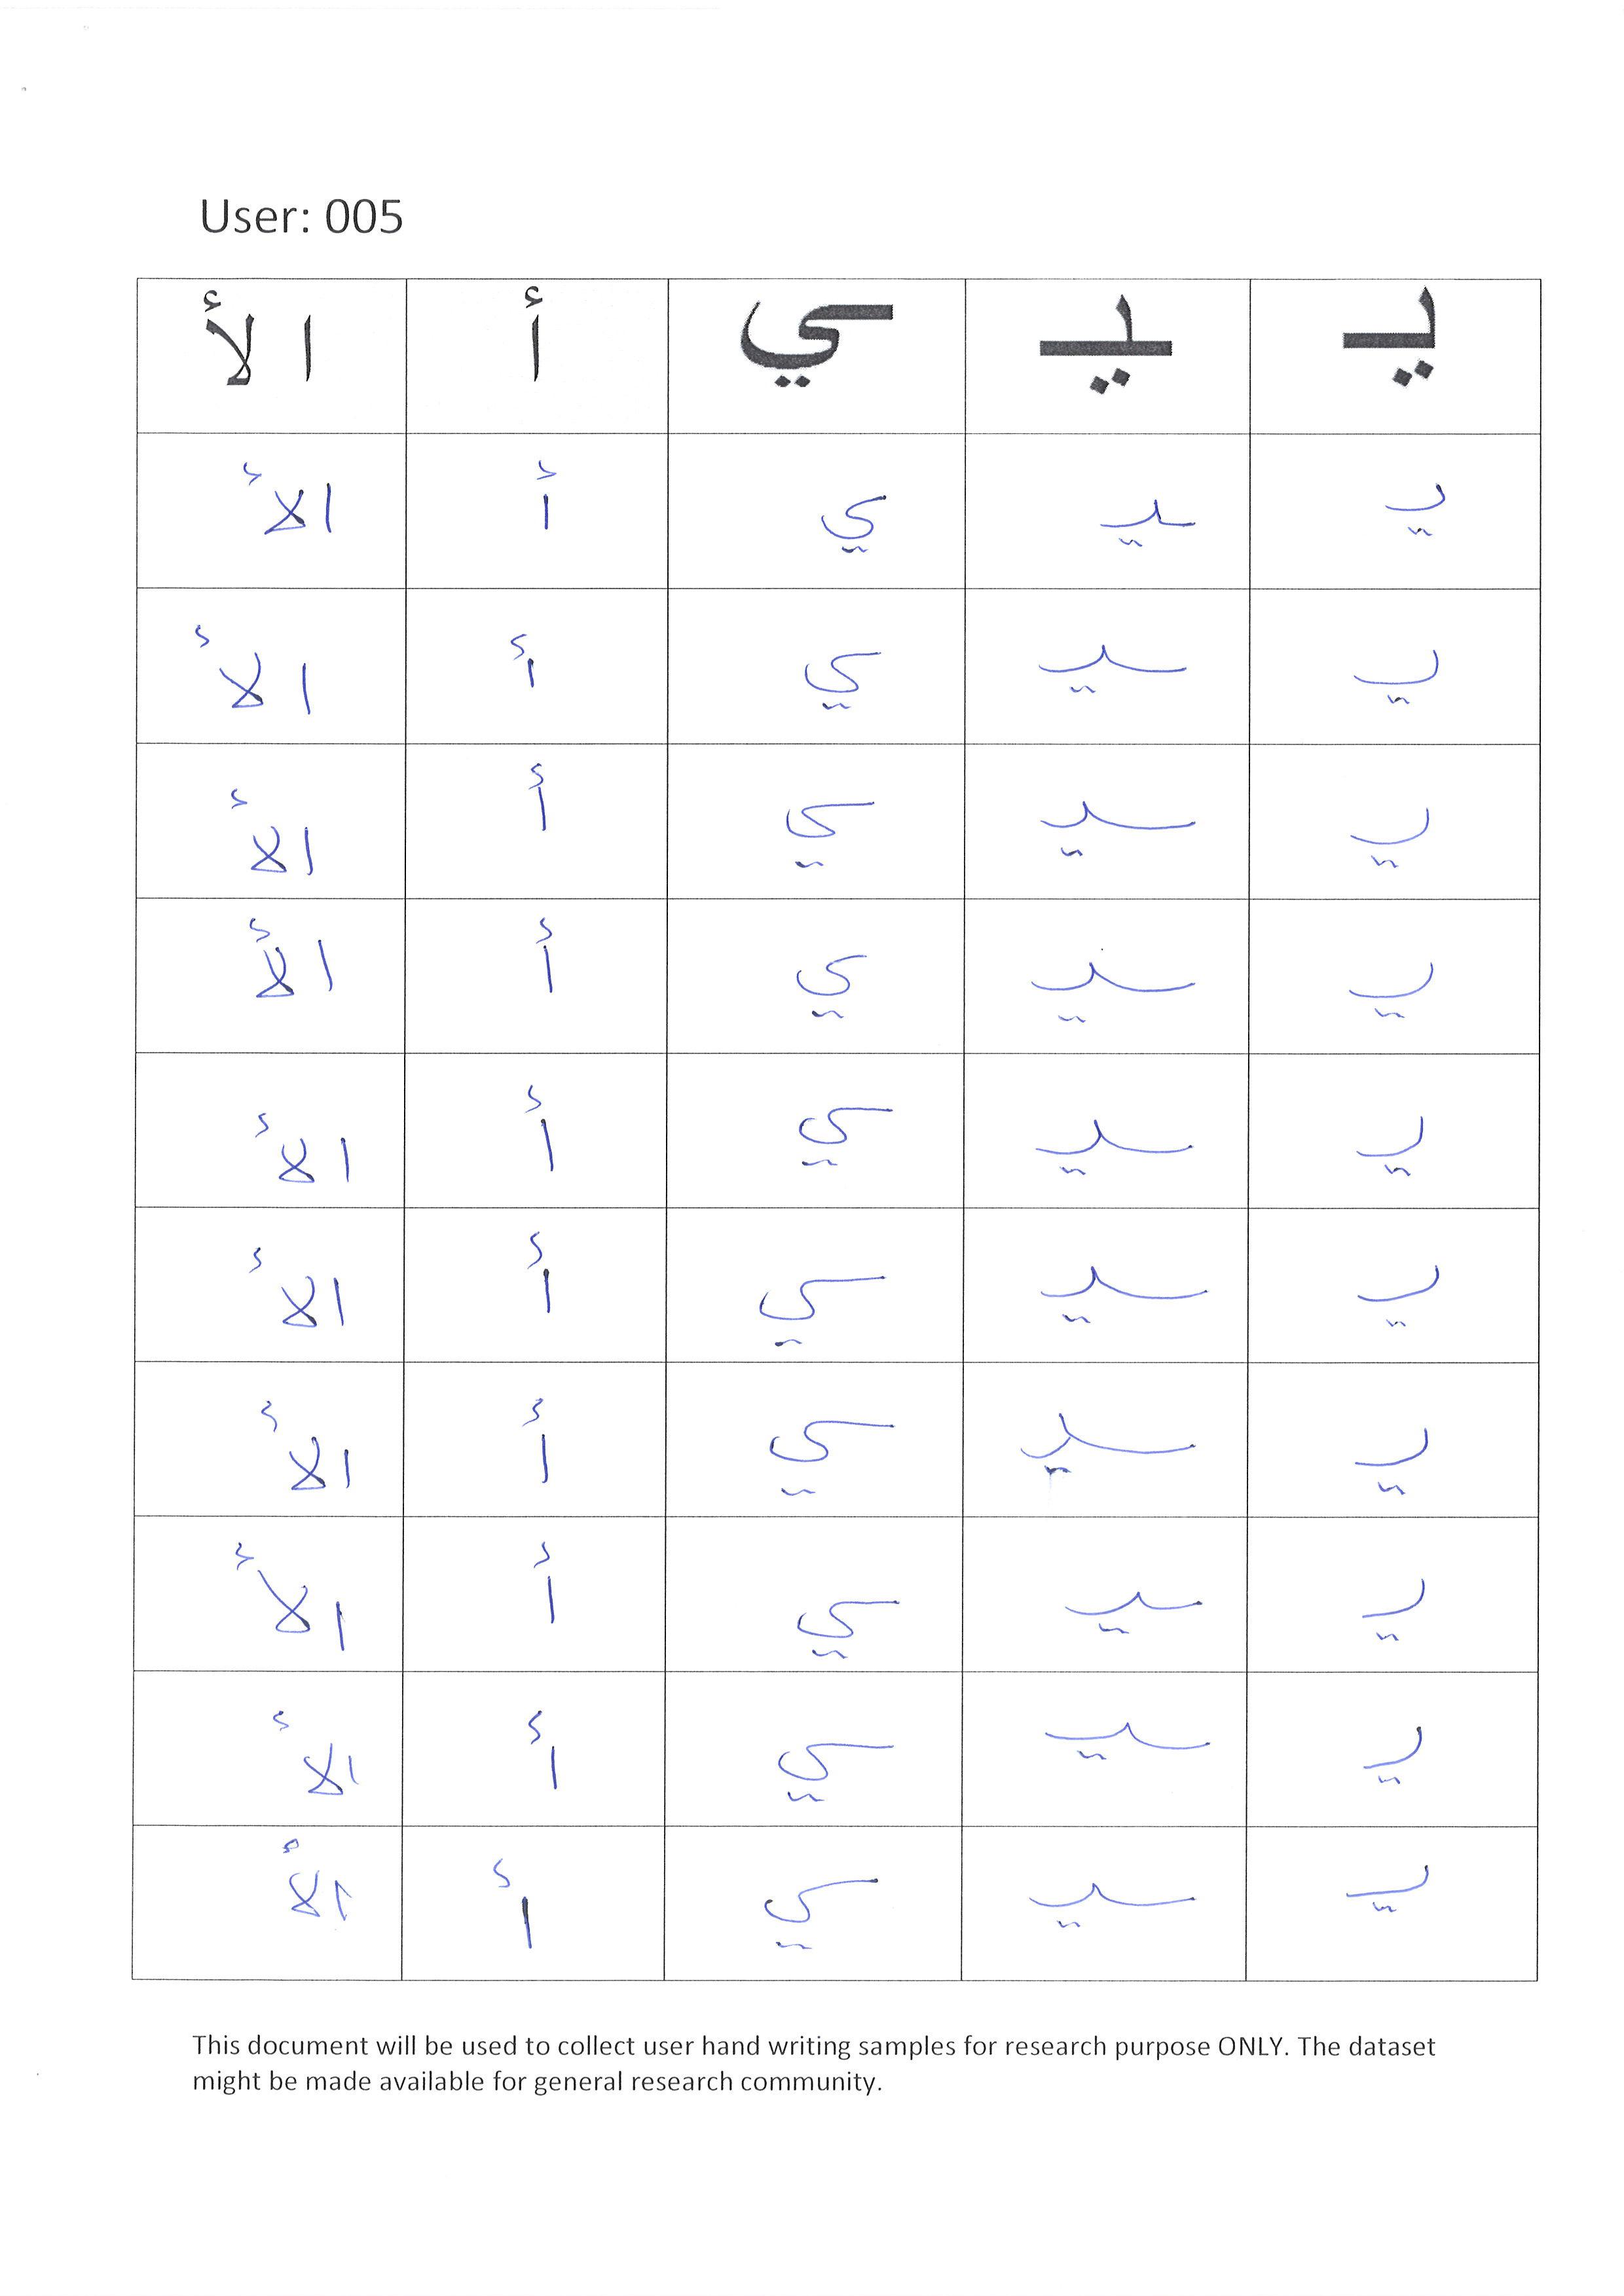 User: 005
يـ ـيـ ـي أ ا لأ
يـ ـيـ ي أ ا لأ
يـ ـيـ ـي أ ا لأ
يـ ـيـ ـي أ ا لأ
يـ ـيـ ي أ ا لأ
يـ ـيـ ـي أ ا لأ
يـ ـيـ ـي أ ا لأ
يـ ـيـ ـي أ ا لأ
يـ ـيـ ـي أ ا لأ
يـ ـيـ ـي أ ا لأ
يـ ـيـ ـي أ ا لأ
This document will be used to collect user hand writing samples for research purpose ONLY. The dataset
might be made available for general research community.